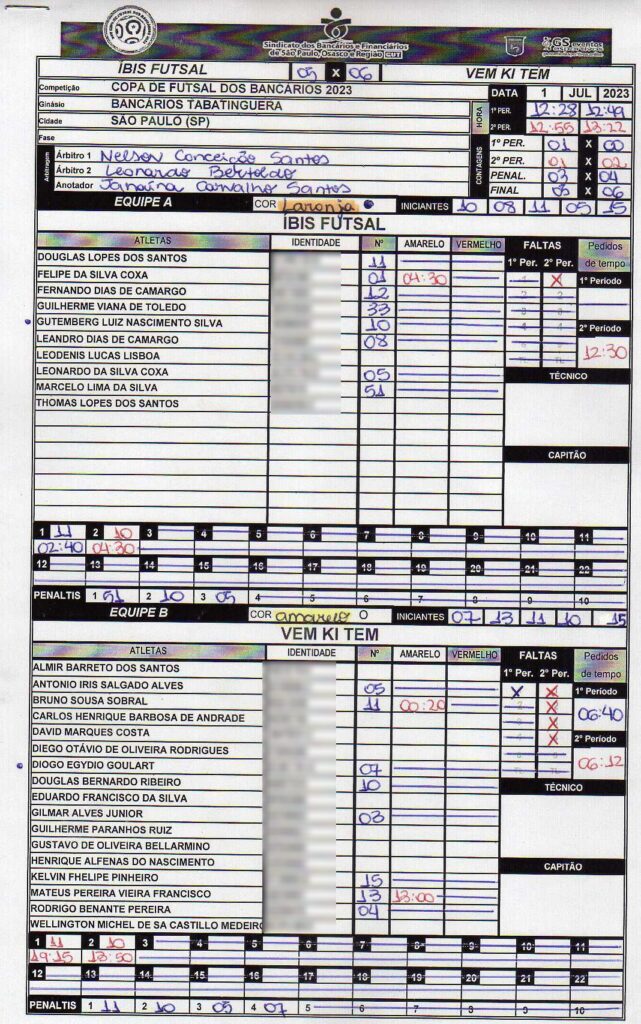 ÍBIS FUTSAL 05 X 06 VEM KI TEM
Sindicato dos Bancários e Financiários
de São Paulo, Osasco e Região CUT
GS eventos
Competição COPA DE FUTSAL DOS BANCÁRIOS 2023 DATA 1 JUL 2023
Ginásio BANCÁRIOS TABATINGUERA HORA 1º PER. 12:28 12:49
Cidade SÃO PAULO (SP) 2º PER. 12:55 13:22
Fase CONTAGENS 1º PER. 01 X 00
Arbitragem Árbitro 1 Nelson Conceição Santos 2º PER. 01 X 02
Árbitro 2 Leonardo Bertoldo PENAL. 03 X 04
Anotador Janaína Carvalho Santos FINAL 05 X 06
EQUIPE A COR Laranja INICIANTES 10 08 11 05 15
ÍBIS FUTSAL
ATLETAS IDENTIDADE Nº AMARELO VERMELHO FALTAS Pedidos de tempo
1º Per. 2º Per.
DOUGLAS LOPES DOS SANTOS 11
FELIPE DA SILVA COXA 01 04:30 X 1º Período
FERNANDO DIAS DE CAMARGO 12
GUILHERME VIANA DE TOLEDO 33
GUTEMBERG LUIZ NASCIMENTO SILVA 10 2º Período
LEANDRO DIAS DE CAMARGO 08 12:30
LEODENIS LUCAS LISBOA
LEONARDO DA SILVA COXA 05 TÉCNICO
MARCELO LIMA DA SILVA 51
THOMAS LOPES DOS SANTOS
CAPITÃO
1 11 2 10 3 4 5 6 7 8 9 10 11
02:40 04:30
12 13 14 15 16 17 18 19 20 21 22
PENALTIS 1 51 2 10 3 05 4 5 6 7 8 9 10
EQUIPE B COR amarelo O INICIANTES 07 13 11 10 15
VEM KI TEM
ATLETAS IDENTIDADE Nº AMARELO VERMELHO FALTAS Pedidos de tempo
1º Per. 2º Per.
ALMIR BARRETO DOS SANTOS
ANTONIO IRIS SALGADO ALVES 05 X X 1º Período
BRUNO SOUSA SOBRAL 11 00:20 X 06:40
CARLOS HENRIQUE BARBOSA DE ANDRADE X
DAVID MARQUES COSTA X 2º Período
DIEGO OTÁVIO DE OLIVEIRA RODRIGUES 06:12
DIOGO EGYDIO GOULART 07
DOUGLAS BERNARDO RIBEIRO 10 TÉCNICO
EDUARDO FRANCISCO DA SILVA
GILMAR ALVES JUNIOR 03
GUILHERME PARANHOS RUIZ
GUSTAVO DE OLIVEIRA BELLARMINO
HENRIQUE ALFENAS DO NASCIMENTO CAPITÃO
KELVIN FHELIPE PINHEIRO 15
MATEUS PEREIRA VIEIRA FRANCISCO 13 13:00
RODRIGO BENANTE PEREIRA 04
WELLINGTON MICHEL DE SA CASTILLO MEDEIRO
1 11 2 10 3 4 5 6 7 8 9 10 11
19:15 13:50
12 13 14 15 16 17 18 19 20 21 22
PENALTIS 1 11 2 10 3 05 4 07 5 6 7 8 9 10